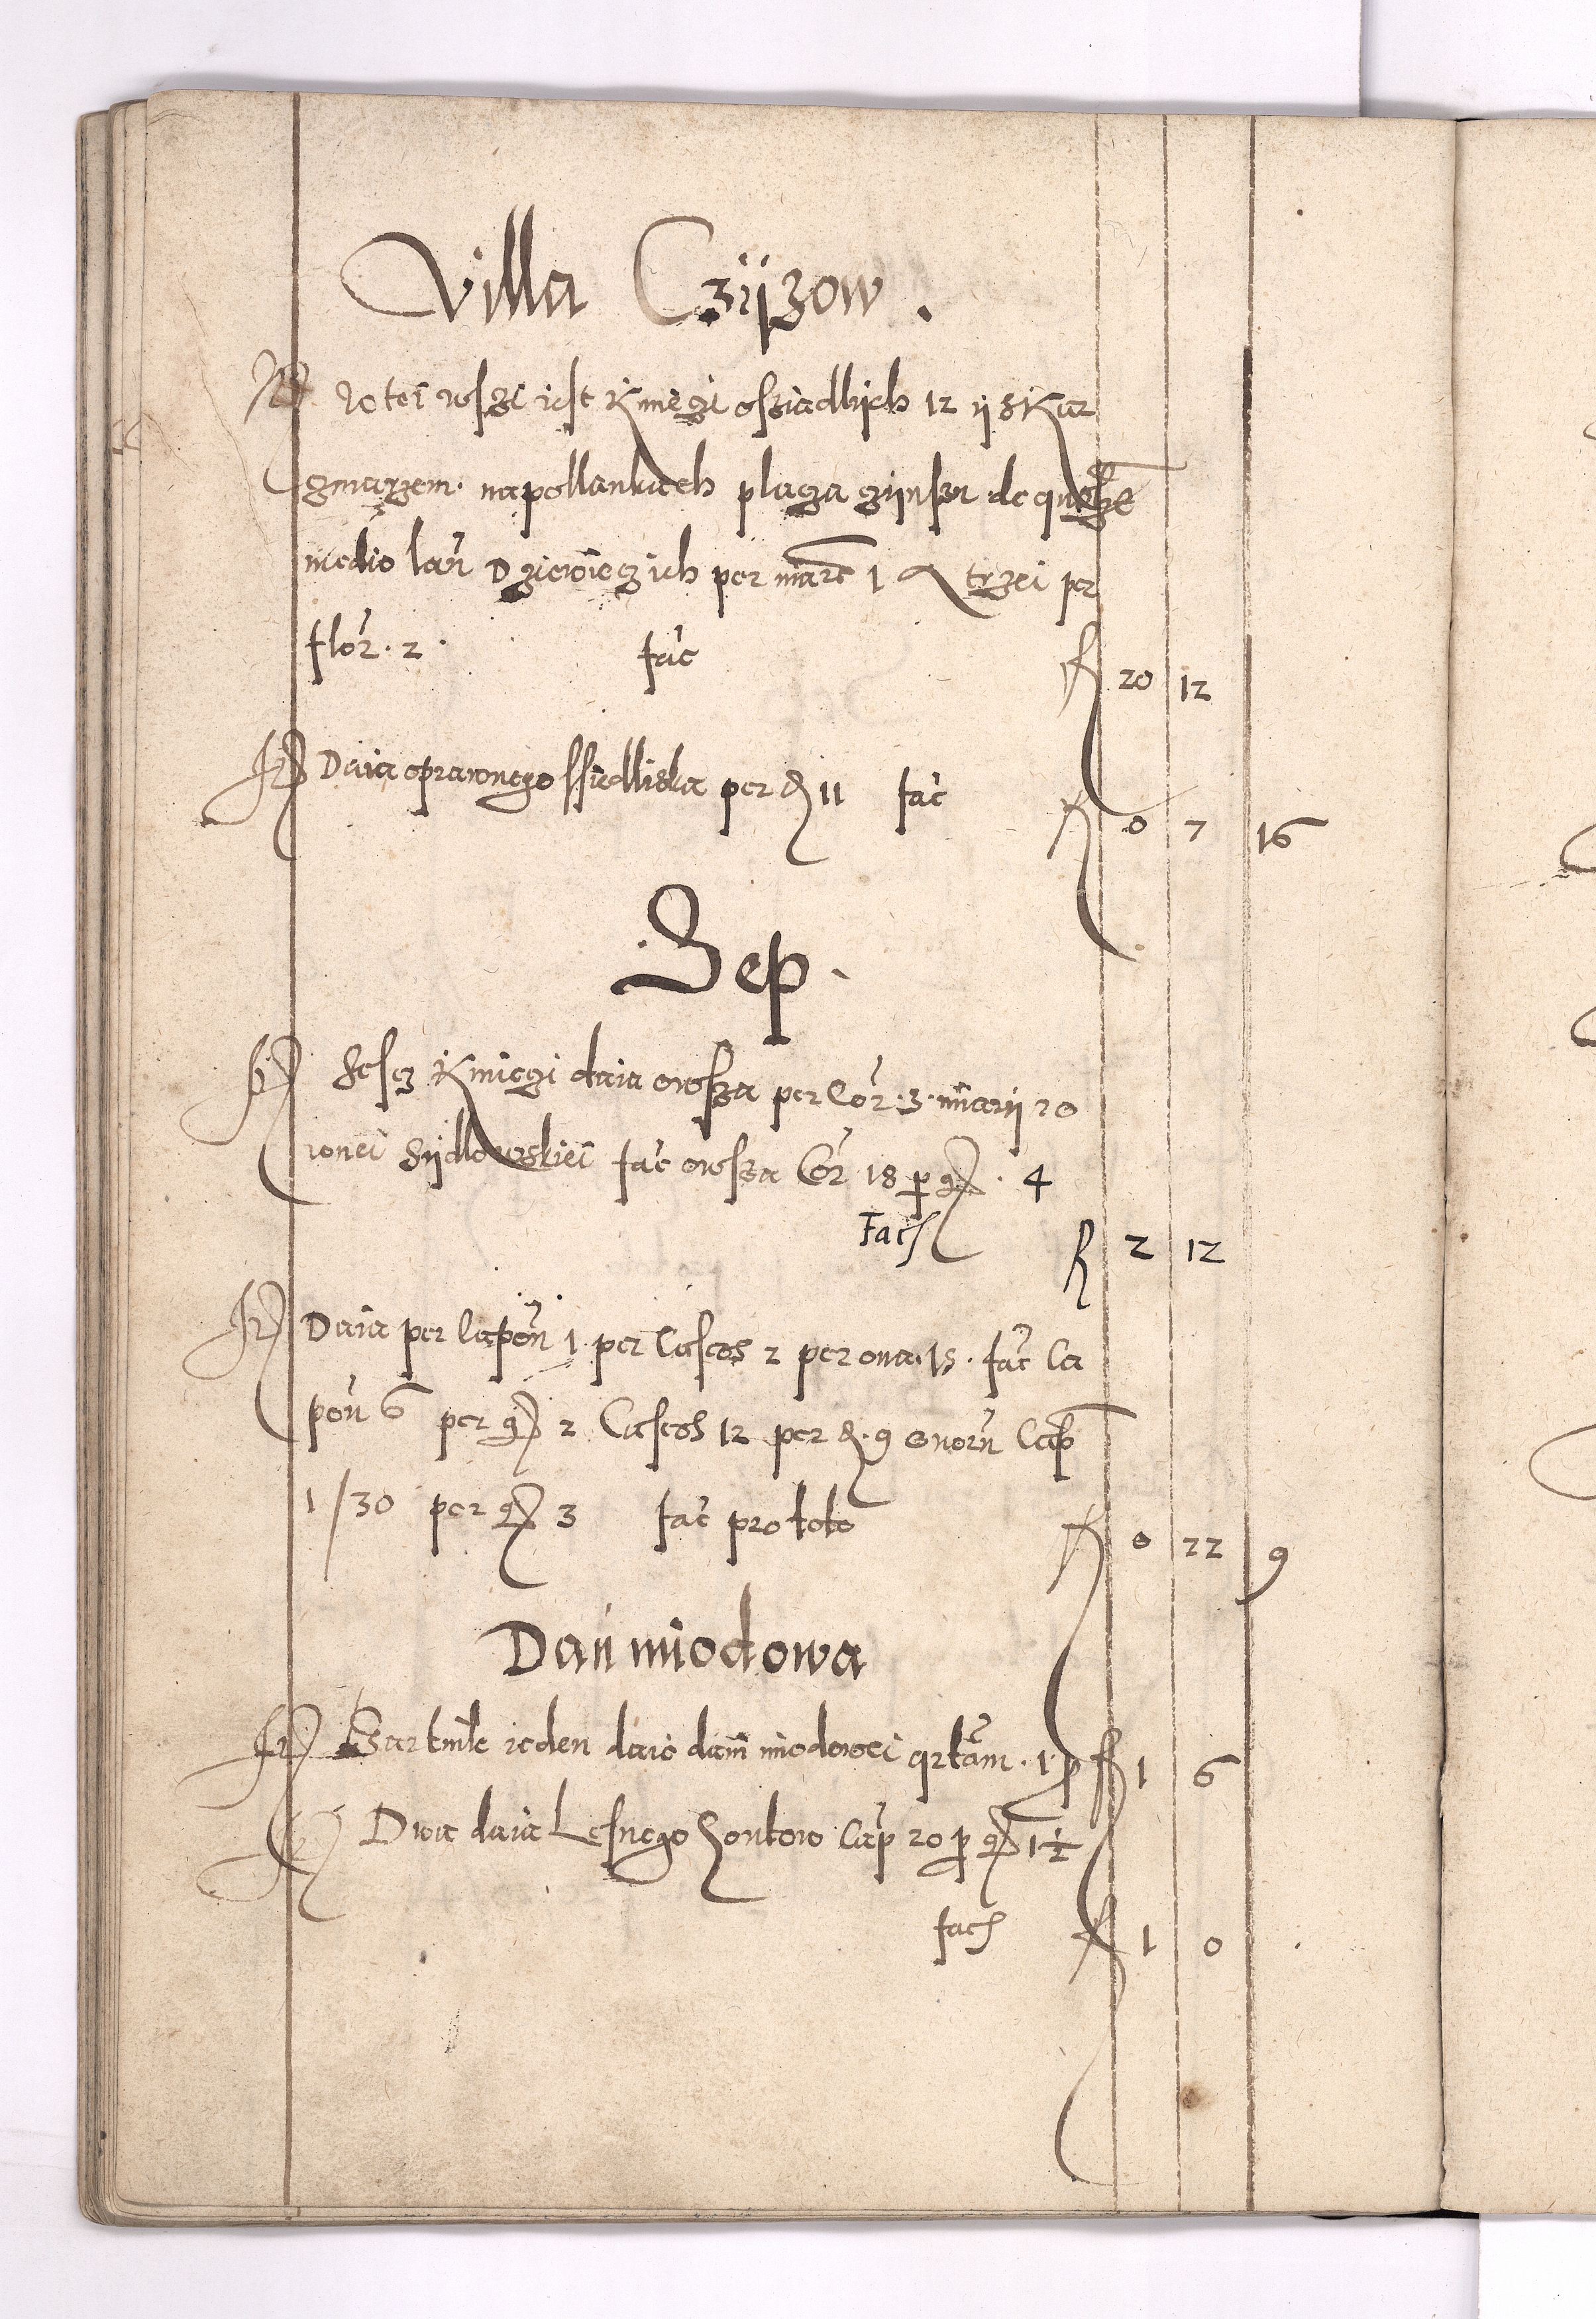 Villa Czÿzow.
W tei wszi iest Kmiêczi osziadlÿch 12 ÿ s Kar
czmarzem. na pollankach placza czÿnszu de quolibet
medio lan̄ Dziewiecz ich per marc̄ 1 A trzei per
flor̄. 2. fac̄ f 20 12
It Daia oprawnego ssiedliska per d 11 fac̄ f 0 7 16
Sep.
It Szescz Kmieczi daia owsza per Cor̄. 3. miarÿ ro
wnei Sÿdlowskiei fac̄ owsza Cor̄ 18 p gr. 4
Facit f 2 12
It Daia per Capon̄ 1. per Caseos 2 per oua. 15. fac̄ Ca
pon̄ 6 per gr 2 Caseos 12 per d. 9 ouorū Cap
1/30 per gr 3 fac̄ pro toto f 0 22 9
Dań miodowa
It Bartnik ieden daie dani miodowei qrtam. 1 p f 1 6
It Dwa daia Lesnego Hontow Cap 20 p gr 1½
facit f 1 0